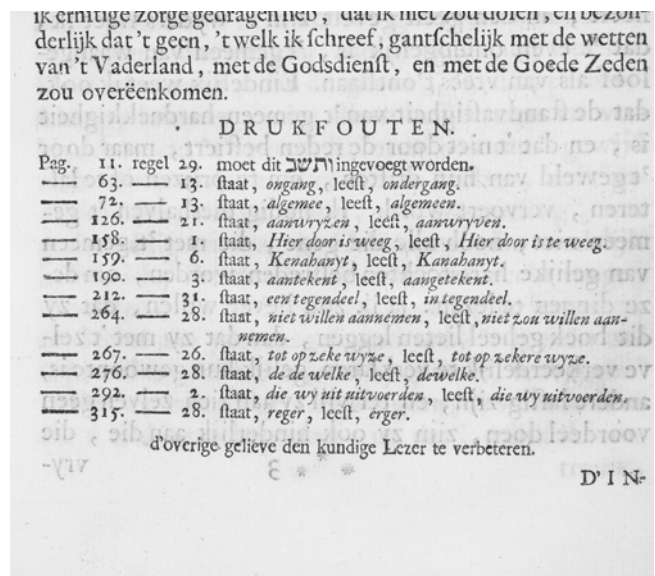 ik ernstige zorge gedragen heb, dat ik niet zou dolen, en bezon-
derlijk dat 't geen, 't welk ik ſchreef, gantſchelijk met de wetten
van 't Vaderland, met de Godsdienſt, en met de Goede Zeden
zou overëenkomen.
DRUKFOUTEN.
Pag. 11. regel 29. moet dit ותשב ingevoegt worden.
—— 63. —— 13. ſtaat, ongang, leeſt, ondergang.
—— 72. —— 13. ſtaat, algemee, leeſt, algemeen.
—— 126. —— 21. ſtaat, aanwryzen, leeſt, aanwryven.
—— 158. —— 1. ſtaat, Hier door is weeg, leeſt, Hier door is te weeg.
—— 159. —— 6. ſtaat, Kenahanyt, leeſt, Kanahanyt.
—— 190. —— 3. ſtaat, aantekent, leeſt, aangetekent.
—— 212. —— 31. ſtaat, een tegendeel, leeſt, in tegendeel.
—— 264. —— 28. ſtaat, niet willen aannemen, leeſt, niet zou willen aan-
nemen.
—— 267. —— 26. ſtaat, tot op zeke wyze, leeſt, tot op zekere wyze.
—— 276. —— 28. ſtaat, de de welke, leeſt, dewelke.
—— 292. —— 2. ſtaat, die wy uit uitvoerden, leeſt, die wy uitvoerden.
—— 315. —— 28. ſtaat, reger, leeſt, erger.
d'overige gelieve den kundige Lezer te verbeteren.
D' IN-